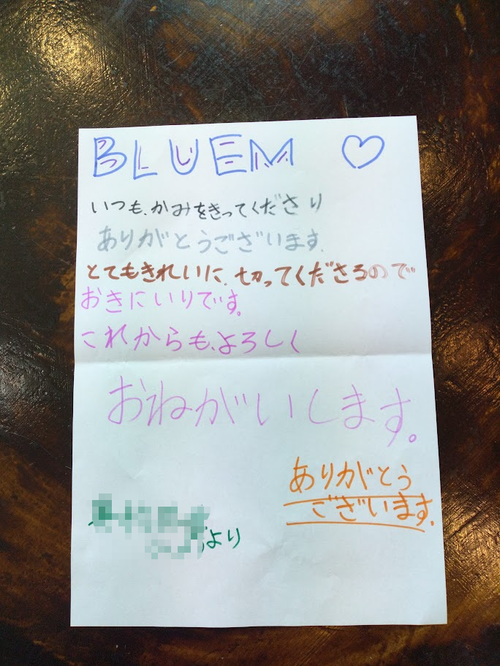 BLUEM ♡
いつも、かみをきってくださり
ありがとうございます。
とてもきれいに、切ってくださるので
おきにいりです。
これからも、よろしく
おねがいします。
ありがとう
ございます。
より